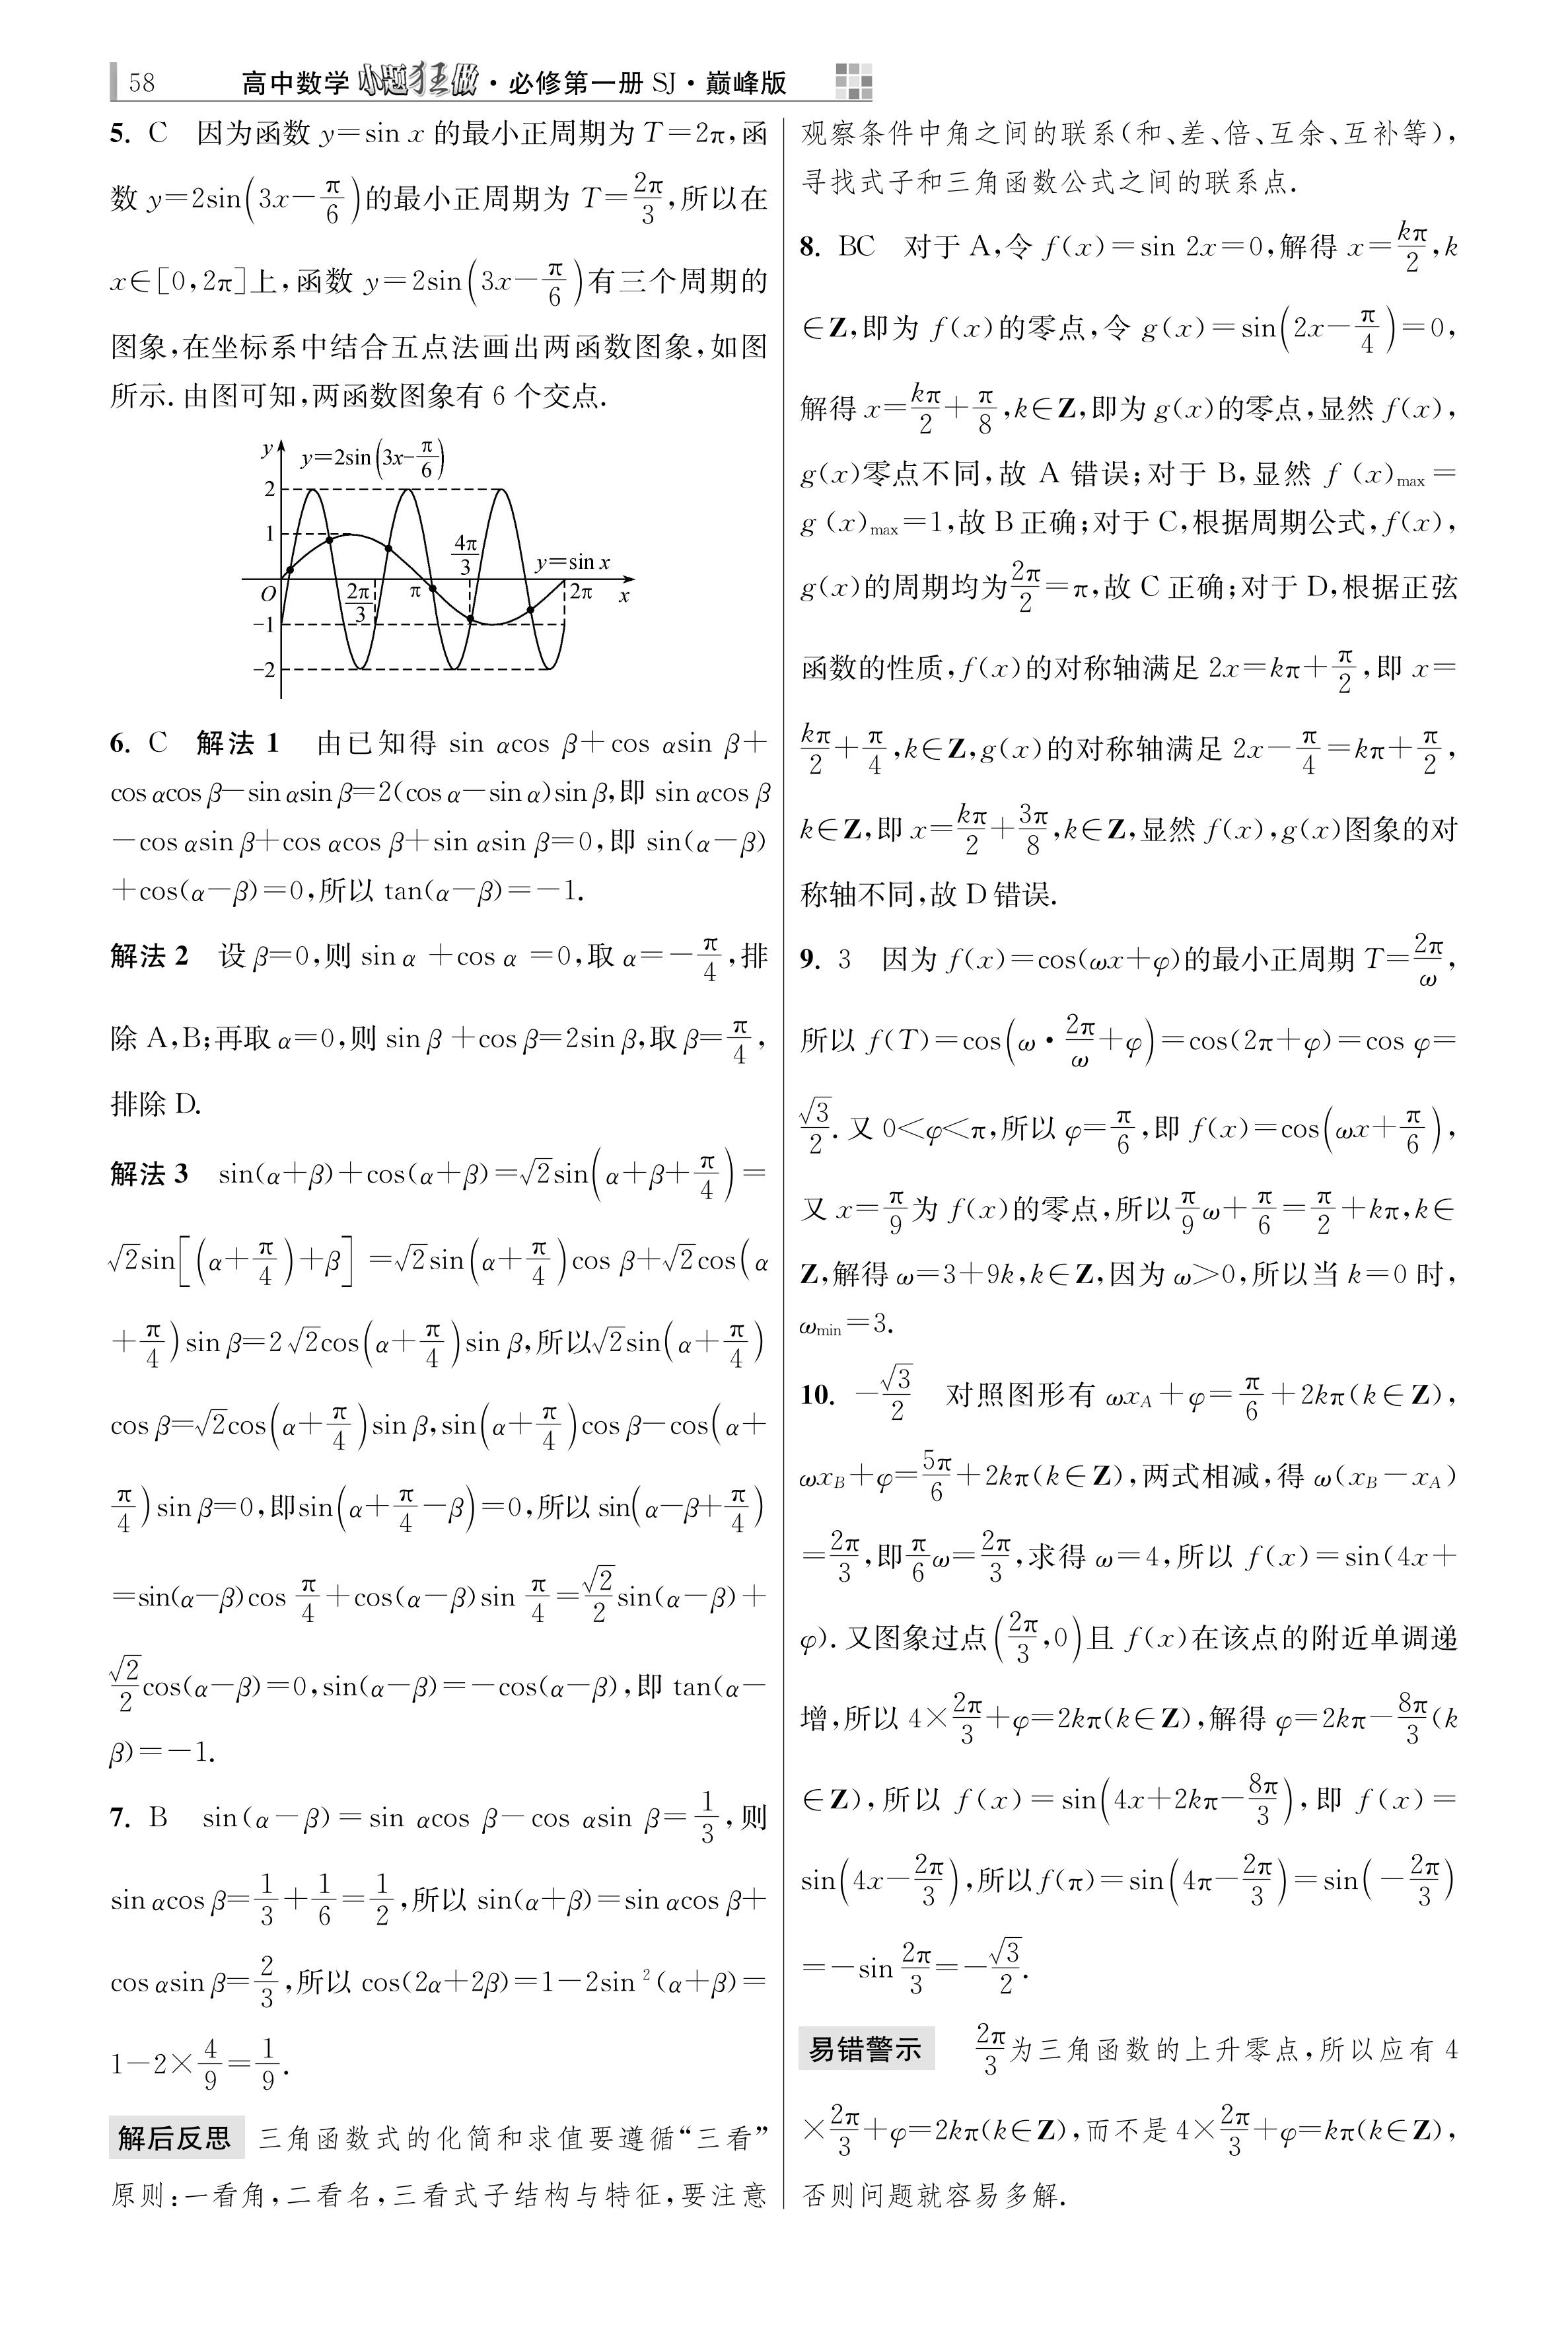 58 高中数学小题狂做·必修第一册 SJ·巅峰版
5. C 因为函数 y=sin x 的最小正周期为 T=2π,函
数 y=2sin(3x-π/6)的最小正周期为 T=2π/3,所以在
x∈[0,2π]上,函数 y=2sin(3x-π/6)有三个周期的
图象,在坐标系中结合五点法画出两函数图象,如图
所示.由图可知,两函数图象有 6 个交点.
y
y=2sin(3x-π/6)
2
1
4π/3
y=sin x
O
2π/3
π
2π
x
-1
-2
6. C 解法 1 由已知得 sin αcos β+cos αsin β+
cos αcos β-sin αsin β=2(cos α-sin α)sin β,即 sin αcos β
-cos αsin β+cos αcos β+sin αsin β=0,即 sin(α-β)
+cos(α-β)=0,所以 tan(α-β)=-1.
解法 2 设 β=0,则 sin α +cos α =0,取 α=-π/4,排
除 A,B;再取 α=0,则 sin β +cos β=2sin β,取 β=π/4,
排除 D.
解法 3 sin(α+β)+cos(α+β)=√2sin(α+β+π/4)=
√2sin[(α+π/4)+β]=√2sin(α+π/4)cos β+√2cos(α
+π/4)sin β=2√2cos(α+π/4)sin β,所以√2sin(α+π/4)
cos β=√2cos(α+π/4)sin β,sin(α+π/4)cos β-cos(α+
π/4)sin β=0,即sin(α+π/4-β)=0,所以 sin(α-β+π/4)
=sin(α-β)cos π/4+cos(α-β)sin π/4=√2/2sin(α-β)+
√2/2cos(α-β)=0,sin(α-β)=-cos(α-β),即 tan(α-
β)=-1.
7. B sin(α-β)=sin αcos β-cos αsin β=1/3,则
sin αcos β=1/3+1/6=1/2,所以 sin(α+β)=sin αcos β+
cos αsin β=2/3,所以 cos(2α+2β)=1-2sin²(α+β)=
1-2×4/9=1/9.
解后反思 三角函数式的化简和求值要遵循“三看”
原则:一看角,二看名,三看式子结构与特征,要注意
观察条件中角之间的联系(和、差、倍、互余、互补等),
寻找式子和三角函数公式之间的联系点.
8. BC 对于 A,令 f(x)=sin 2x=0,解得 x=kπ/2,k
∈Z,即为 f(x)的零点,令 g(x)=sin(2x-π/4)=0,
解得 x=kπ/2+π/8,k∈Z,即为 g(x)的零点,显然 f(x),
g(x)零点不同,故 A 错误;对于 B,显然 f (x)max=
g (x)max=1,故 B 正确;对于 C,根据周期公式,f(x),
g(x)的周期均为2π/2=π,故 C 正确;对于 D,根据正弦
函数的性质,f(x)的对称轴满足 2x=kπ+π/2,即 x=
kπ/2+π/4,k∈Z,g(x)的对称轴满足 2x-π/4=kπ+π/2,
k∈Z,即 x=kπ/2+3π/8,k∈Z,显然 f(x),g(x)图象的对
称轴不同,故 D 错误.
9. 3 因为 f(x)=cos(ωx+φ)的最小正周期 T=2π/ω,
所以 f(T)=cos(ω·2π/ω+φ)=cos(2π+φ)=cos φ=
√3/2.又 0<φ<π,所以 φ=π/6,即 f(x)=cos(ωx+π/6),
又 x=π/9为 f(x)的零点,所以π/9ω+π/6=π/2+kπ,k∈
Z,解得 ω=3+9k,k∈Z,因为 ω>0,所以当 k=0 时,
ωmin=3.
10. -√3/2 对照图形有 ωxA+φ=π/6+2kπ(k∈Z),
ωxB+φ=5π/6+2kπ(k∈Z),两式相减,得 ω(xB-xA)
=2π/3,即π/6ω=2π/3,求得 ω=4,所以 f(x)=sin(4x+
φ).又图象过点(2π/3,0)且 f(x)在该点的附近单调递
增,所以 4×2π/3+φ=2kπ(k∈Z),解得 φ=2kπ-8π/3(k
∈Z),所以 f(x)=sin(4x+2kπ-8π/3),即 f(x)=
sin(4x-2π/3),所以f(π)=sin(4π-2π/3)=sin(-2π/3)
=-sin 2π/3=-√3/2.
易错警示 2π/3为三角函数的上升零点,所以应有 4
×2π/3+φ=2kπ(k∈Z),而不是 4×2π/3+φ=kπ(k∈Z),
否则问题就容易多解.